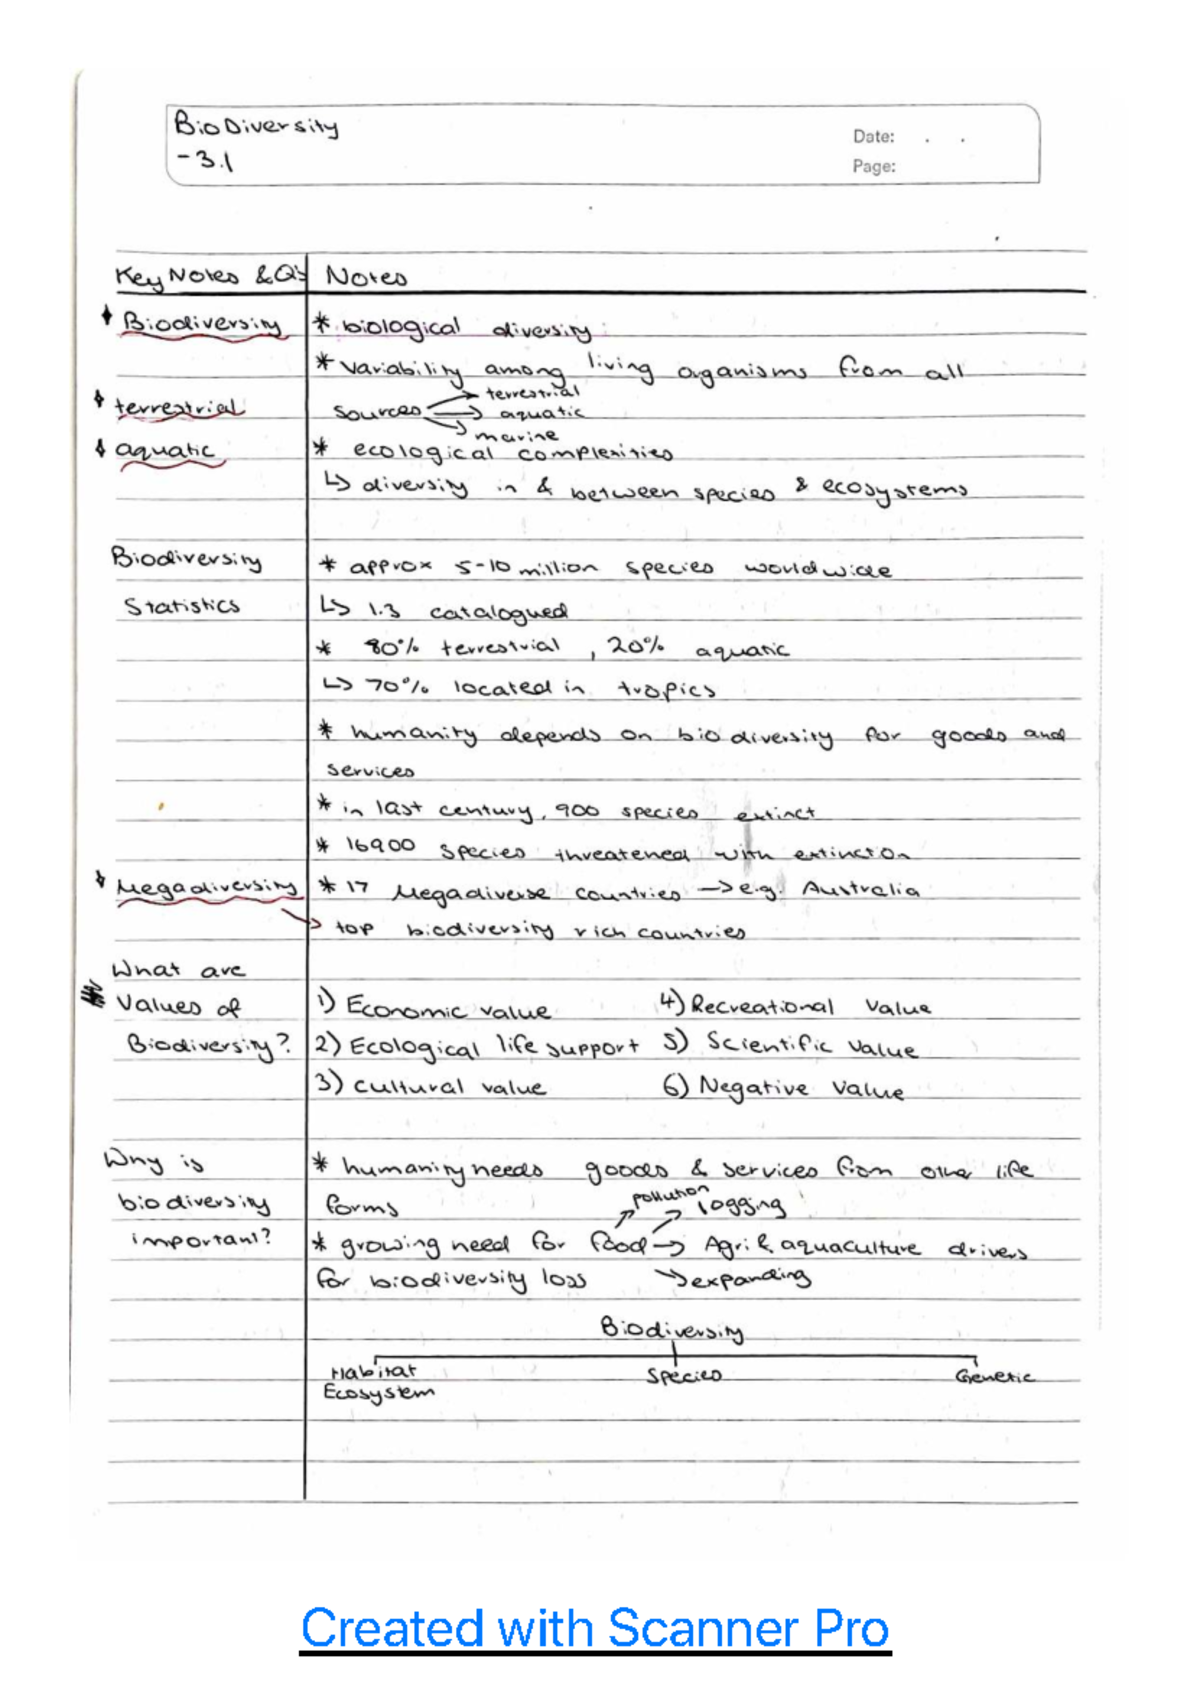 BioDiversity
- 3.1
Date: . .
Page:
Key Notes & Q's Notes
Biodiversity * biological diversity
* variability among living organisms from all
terrestrial sources → terrestrial
→ aquatic
→ marine
aquatic * ecological complexities
↳ diversity in & between species & ecosystems
Biodiversity * approx 5-10 million species worldwide
Statistics ↳ 1.3 catalogued
* 80% terrestrial, 20% aquatic
↳ 70% located in tropics
* humanity depends on biodiversity for goods and
services
* in last century, 900 species extinct
* 16900 species threatened with extinction
Megadiversity * 17 Megadiverse countries → e.g. Australia
→ top biodiversity rich countries
What are
Values of 1) Economic value 4) Recreational Value
Biodiversity? 2) Ecological life support 5) Scientific Value
3) Cultural value 6) Negative Value
Why is * humanity needs goods & services from other life
biodiversity forms
pollution
logging
important? * growing need for food → Agri & aquaculture drivers
for biodiversity loss → expanding
Biodiversity
Habitat Species Genetic
Ecosystem
Created with Scanner Pro